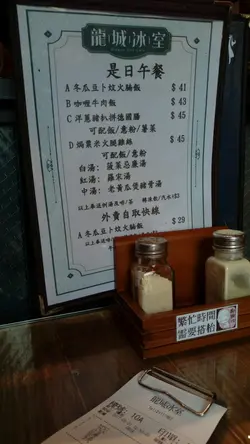 龍城冰室
是日午餐
A 冬瓜豆卜炆火腩飯 $41
B 咖喱牛肉飯 $43
C 洋蔥豬扒拼德國腸 $45
可配飯/意粉/薯菜
D 焗粟米火腿雞絲 $45
可配飯/意粉
白湯: 菠菜忌廉湯
紅湯: 羅宋湯
中湯: 老黃瓜煲豬骨湯
外賣自取快線
A 冬瓜豆卜炆火腩飯 $29
繁忙時間
需要搭枱
龍城冰室